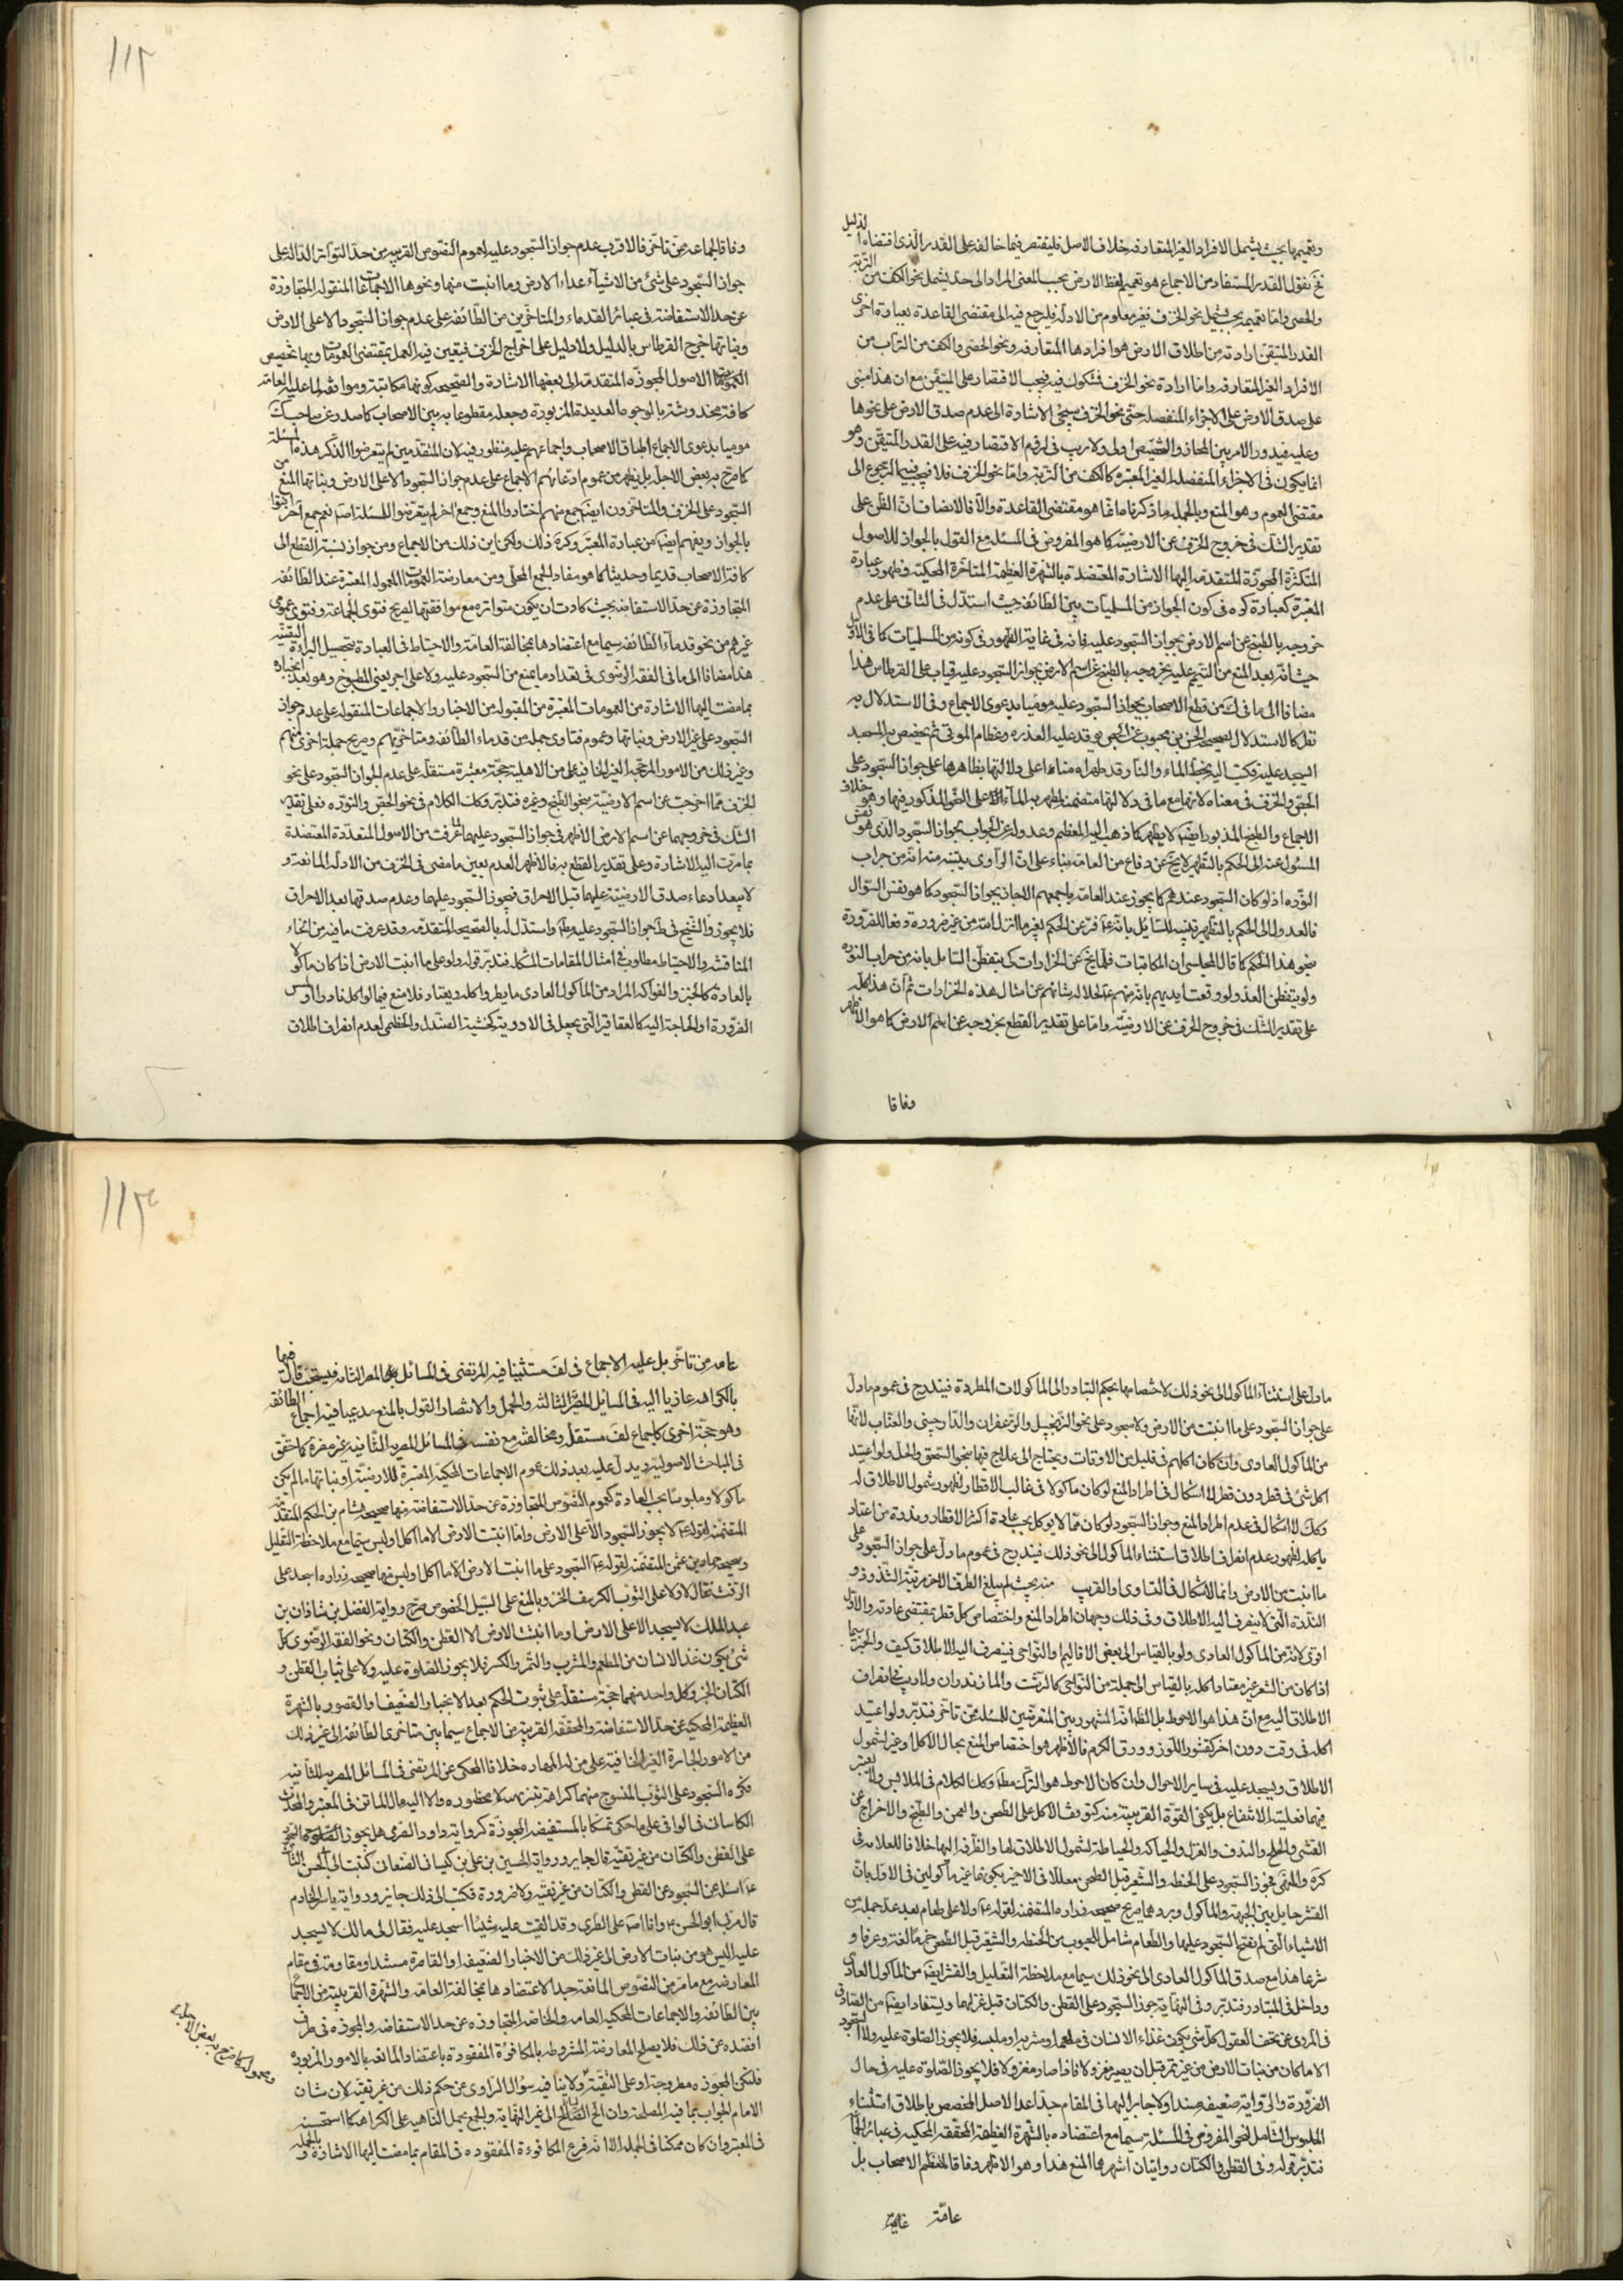 وتعميمها بحيث يشمل الافراد الغير المتعارفه خلاف الاصل فليقتصر فيما خالفه على القدر الذى اقتضاه الدليل
نقول القدر المستفاد من الاجماع هو تعميم لفظ الارض بحسب المعنى المراد الى حد يشمل نحو الكف من التربة
والحصى واما تعميمه بحيث يشمل نحو الخزف فغير معلوم من الادلة فليرجع فيه الى مقتضى القاعدة بعبارة اخرى
القدر المتيقن ارادته من اطلاق الارض هو افرادها المتعارفه ونحو الحصى والكف من التراب من
الافراد الغير المتعارفه واما ارادة نحو الخزف فمشكوك فيه فيجب الاقتصار على المتيقن مع ان هذا مبنى
على صدق الارض على الاجزاء المنفصله حتى نحو الخزف سيجئ الاشارة الى عدم صدق الارض على نحوها
وعليه فيدور الامر بين المجاز والتخصيص اولى ولا ريب فى لزوم الاقتصار فيه على القدر المتيقن وهو
انما يكون فى الاجزاء المنفصله الغير المعتبره كالكف من التربة واما نحو الخزف فلا فيجب فيها الرجوع الى
مقتضى العموم وهو المنع وبالجمله ما ذكرناه انما هو مقتضى القاعدة والا فالانصاف ان الظن على
تقدير الشك فى خروج الخزف عن الارضية كما هو المفروض فى المسئله مع القول بالجواز للاصول
المتكثرة المجوزة المتقدمه اليها الاشارة المعتضدة بالشهرة العظيمة المتاخرة المحكية وظهور عبارة
المعتبرة كعبارة كره فى كون الجواز من المسلميات بين الطائفه حيث استدل فى الثانى على عدم
خروجه بالطبخ عن اسم الارض بجواز السجود عليه فانه فى غاية الظهور فى كونه من المسلميات كما فى الاول
حيث انه بعد المنع من التيمم عليه بخروجه بالطبخ عن اسم الارض بجواز السجود عليه قياب على القرطاس هذا
مضافا الى ما فى ك من قطع الاصحاب بجواز السجود عليه موميا بدعوى الاجماع وفى الاستدلال به
نظر كالاستدلال بصحيحة الحسن بن محبوب عن الجص يوقد عليه العذره وعظام الموتى ثم يجصص به المسجد
ايسجد عليه فكتب اليه بخطه الماء والنار قد طهراه بناء على دلالتها بظاهرها على جواز السجود على
الجص والخزف فى معناه لانها مع ما فى دلالتها متضمنة لطهر به الماء على النحو المذكور فيها وهو خلاف
الاجماع والطبخ المذبور ايضا لا يطهر كما ذهب اليه المعظم وعدوله عن الجواب بجواز السجود الذى هو نفس
المسئول عنه الى الحكم بالتطهير لا يخ عن دفاع من العامه بناء على ان الراوى بنيته منه انه من جراب
النوره اذ لو كان السجود عندهم كما يجوز عند العامه باجمعهم لاجاز بجواز السجود كما هو نفس السؤال
فالعدول الى الحكم بالتطهير تنبيه للسائل بانه عه فر عن الحكم بغير ما انزل الله من غير ضرورة دفعا للضرورة
بنحو هذا الحكم كما قال المجلسى ان المكاتبات قلما يخ عن الحزازات كى يتفطن السائل بانه من جراب النوره
ولو يتفطن العدو لو وقعت ايديهم بانه منهم عه لجلاله شانهم عن امثال هذه الحزازات ثم ان هذا كله
على تقدير الشك فى خروج الخزف عن الارضية واما على تقدير القطع بخروجه عن اسم الارض كما هو الاظهر
وفاقا
١١٢
وفاقا لجماعة ممن تاخر فالاقرب عدم جواز السجود عليه لعموم النصوص القريبه من حد التواتر الدالة على
جواز السجود على شئ من الاشياء عداء الارض وما انبت منها ونحوها الاجماعات المنقوله المتجاوزة
عن حد الاستفاضة فى عبائر القدماء والمتاخرين من الطائفه على عدم جواز السجود الا على الارض
ونباتها خرج القرطاس بالدليل ولا دليل على اخراج الخزف فيبقى فيه العمل بمقتضى العمومات وبها تخصيص
الاصول المجوزه المتقدمه الى بعضها الاشارة والصحيحه كونها مكاتبة وموافقه لما عليه العامة
كافة مخدوشه بالوجوه العديدة المزبورة وجعله مقطوعا به بين الاصحاب كما صدر عن صاحب ك
موميا بدعوى الاجماع اطباق الاصحاب واجماعهم عليه منظور فيه لان المتقدمين لم يتعرضوا لذكر هذه المسئلة
كما صرح به بعض الاجلة بل يظهر من عموم ادعائهم الاجماع على عدم جواز السجود الا على الارض ونباتها المنع من
السجود على الخزف والمتاخرون ايضا جمع منهم اختاروا المنع وجمع اخر لم يتعرضوا للمسئلة اصلا نعم جمع آخر افتوا
بالجواز ويفهم ايضا من عبارة المعتبر وكره ذلك ولكن اين ذلك من الاجماع ومن جواز نسبة القطع الى
كافة الاصحاب قديما وحديثا كما هو مفاد الجمع المحلى ومن معارضة العمومات المعموله المعتبرة عند الطائفه
المتجاوزة عن حد الاستفاضة بحيث كادت ان يكون متواتره مع موافقتها لصريح فتوى الجماعة وفتوى عموم
غيرهم من نحو قدماء الطائفه سيما مع اعتضادها بمخالفة العامة والاحتياط فى العبادة بتحصيل البرائة اليقينية
هذا مضافا الى ما فى الفقه الرضوى فى تعداد ما يمنع من السجود عليه ولا على اجر يعنى المطبوخ وهو بعد انجباره
بما مضت اليها الاشارة من العمومات المعتبرة من المقبوله من الاخبار والاجماعات المنقوله على عدم جواز
السجود على غير الارض ونباتها وعموم فتاوى جمله من قدماء الطائفه ومتاخريهم وصريح جملة اخرى منهم
وغير ذلك من الامور المرجحة الغير الخافية على من الاهلية حجة معتبرة مستقلة على عدم الجواز السجود على نحو
الخزف مما اخرجت عن اسم الارضية بنحو الطبخ وغيره فتدبر وكك الكلام فى نحو الجص والنوره فعلى تقدير
الشك فى خروجهما عن اسم الارض الاظهر فى جواز السجود عليهما لما عرفت من الاصول المتعددة المعتضدة
بما مرت اليه الاشارة وعلى تقدير القطع به فالاظهر العدم بعين ما مضى فى الخزف من الادلة المانعة و
لا يبعد ادعاء صدق الارضية عليهما قبل الاحراق فيجوز السجود عليهما وعدم صدقها بعد الاحراق
فلا يجوز والشيخ فى ط جواز السجود عليه مطلقا واستدل له بالصحيحه المتقدمه وقد عرفت ما فيه من انحاء
المناقشة والاحتياط مطلوب فى امثال المقامات المشكله فتدبر قوله ولو على ما انبتت الارض اذا كان ماكولا
بالعادة كالخبز والفواكه المراد من الماكول العادى ما يطرد اكله ويعتاد فلا منع فيما لو اكل نادرا او لمس
الضرورة او الحاجة اليه كالعقاقير التى يجعل فى الادوية كخشبة الصندل والخطمى لعدم انصراف اطلاق
ما دل على استثناء الماكول الى نحو ذلك لاختصاصها بحكم التبادر الى الماكولات المطردة فيندرج فى عموم ما دل
على جواز السجود على ما انبتت من الارض ولا سجود على نحو الزنجبيل والزعفران والدارچينى والعناب لانها
من الماكول العادى وان كان اكلهم فى قليل من الاوقات ويحتاج الى علاج فيها بنحو السحق والحل ولو اعتيد
اكل شئ فى قطر دون قطر لا اشكال فى اطراد المنع لو كان ماكولا فى غالب الاقطار لظهور شمول الاطلاق له
وكك لا اشكال فى عدم اطراد المنع وجواز السجود لو كان مما لا يوكل بحسب عادة اكثر الاقطار وندرة من اعتاد
باكله لظهور عدم انصراف اطلاق استثناء الماكول الى نحو ذلك فيندرج فى عموم ما دل على جواز السجود على
ما انبتت من الارض وانما الاشكال فى التساوى والقريب منه بحيث لم يبلغ الطرف الاخر مرتبة الشذوذ و
الندرة التى لا ينصرف اليه الاطلاق وفى ذلك وجهان اطراد المنع واختصاص كل قطر بمقتضى عادته والاول
اقوى لانه من الماكول العادى ولو بالقياس الى بعض الاقاليم والنواحى فينصرف اليه الاطلاق كيف والخبز سيما
اذا كان من الشعير غير معتاد اكله بالقياس الى جملة من النواحى كالرشت والمازندران ولا ريب فى انصراف
الاطلاق اليه مع ان هذا هو الاحوط بل الظاهر انه المشهور بين المتعرضين للمسئله ممن تاخر فتدبر ولو اعتيد
اكله فى وقت دون اخر كقشور اللوز وورق الكرم فالاظهر هو اختصاص المنع بحال الاكل وغير شمول
الاطلاق ويسجد عليه فى ساير الاحوال وان كان الاحوط هو الترك مطلقا وكك الكلام فى الملابس ولا يعتبر
فيهما فعلية الانتفاع بل يكفى القوة القريبة منه كتوقف الاكل على الطحن والعجن والطبخ والاخراج عن
القشر والحلج والندف والغزل والحياكه والخياطة لشمول الاطلاق لها والظرف اليها خلافا للعلامه فى
كره والمنتهى فجوز السجود على الحنطه والشعير قبل الطحن معللا فى الاخير بكونهما غير ماكولين فى الاول بان
القشر حايل بين الجبهة والماكول ويردهما صريح صحيحه زراره المتضمنه لقوله عه ولا على طعام بعد عد جمله من
الاشياء التى لم نفتح السجود عليها والطعام شامل للحبوب من الحنطه والشعير قبل الطحن جزما لغة وعرفا و
شرعا هذا مع صدق الماكول العادى الى نحو ذلك سيما مع ملاحظة التعليل والقشر ايضا من الماكول العادى
وداخل فى المتبادر فتدبر وفى النهاية جوز السجود على القطن والكتان قبل غزلهما ويستفاد ايضا من الصادق
فى المروى عن تحف العقول كل شئ يكون غذاء الانسان فى مطعمه او مشربه او ملبسه فلا يجوز الصلوة عليه ولا السجود
الا ما كان من نبات الارض من غير ثمر قبل ان يصير مغزولا فاذا صار مغزولا فلا يجوز الصلوة عليه فى حال
الضرورة والرواية ضعيفه سندا ولا جابر اليها فى المقام جدا عدا الاصل المخصص باطلاق استثناء
الملبوس الشامل لنحو المفروض فى المسئله سيما مع اعتضاده بالشهرة العظيمة المحققة المحكيه فى عبائر الجماعة
فتدبر قوله وفى القطن والكتان روايتان اشهرهما المنع هذا وهو الاظهر وفاقا لمعظم الاصحاب بل
عامة
١١٣
عامه من تاخر بل عليه الاجماع فى لف مستثنيا فيه المرتضى فى المسائل المصرية الثانيه فيستحب قال فيها
بالكراهه عازيا اليه فى المسائل المصرية الثالثه والجمل والانتصار القول بالمنع مدعيا فيه اجماع الطائفه
وهو حجة اخرى كاجماع لف مستقلة ومخالفته مع نفسه فى المسائل المصريه الثانيه غير مضرة كما حقق
فى المباحث الاصوليه ويدل عليه بعد ذلك عموم الاجماعات المحكية المعتبرة للارضية او نباتها ما لم يكن
ماكولا وملبوسا بحسب العادة كعموم النصوص المتجاوزة عن حد الاستفاضة منها صحيحه هشام بن الحكم المتقدمه
المتضمنه لقوله عه لا يجوز السجود الا على الارض واما انبتت الارض الا ما اكل ولبس سيما مع ملاحظة التعليل
وصحيحه حماد بن عثمان المتضمنه لقوله عه السجود على ما انبتت الارض الا ما اكل او لبس منها صحيحه زراره اسجد على
الزفت فقال لا ولا على الثوب الكرسف الخ وبالمنع على السبيل الخصوص صرح رواية الفضل بن شاذان بن
عبد الملك لا يسجد الا على الارض او ما انبتت الارض الا القطن والكتان ونحو الفقه الرضوى كل
شئ يكون غذا الانسان من المطعم والمشرب والثمر والكسر فلا يجوز الصلوة عليه ولا على ثياب القطن و
الكتان الخبر وكل واحد منهما حجة مستقلة على ثبوت الحكم بعد الانجبار الضعيف والقصور بالشهرة
العظيمة المحكية عن حد الاستفاضة والمحققه القريبة من الاجماع سيما بين متاخرى الطائفه الى غير ذلك
من الامور الجابرة الغير الخافية على من له المهاره خلافا المحكى عن المرتضى فى المسائل المصريه الثانيه
فكره السجود على الثوب المنسوج منهما كراهة تنزيه لا محظوره والا اليه مال الماتن فى المعتبر والمحدث
الكاسانى فى الوافى على ما حكى تمسكا بالمستفيضه المجوزة كرواية داود الصرمى هل يجوز السجود
على القطن والكتان من غير تقيه قال جايز ورواية الحسين بن على بن كيسان الصنعانى كتبت الى ابى الحسن الثالث
عه اسئله عن السجود عن القطن والكتان من غير تقيه ولا ضرورة فكتب الى ذلك جايز ورواية ياسر الخادم
قال مر بى ابو الحسن عه وانا اصلى على الطبرى وقد القيت عليه شيئا اسجد عليه فقال لى مالك لا تسجد
عليه اليس هو من نبات الارض الى غير ذلك من الاخبار الضعيفه او القاصرة سندا ومقاومة فى مقام
المعارضه مع ما مر من النصوص المانعة جدا لاعتضادها بمخالفة العامه والشهرة القريبه من الاجماع
بين الطائفه والاجماعات المحكية العامه والخاصه المتجاوزه عن حد الاستفاضه والمجوزه فى طرف
افقده عن ذلك فلا يصلح المعارضة المشروطه بالمكافوة المفقودة باعتضاد المانعه بالامور المزبوره
فلتكن المجوزه مطروحة او على التقية ولا ينافيه سؤال الراوى عن حكم ذلك من غير تقية لان شان
الامام الجواب بما فيه المصلحة وان الح السائل الى غر النهاية والجمع بحمل الناهيه على الكراهة كما استحسنه
فى المعتبر وان كان ممكنا فى الجمله الا انه فرع المكافوءة المفقوده فى المقام بما مضت اليها الاشارة وبالجمله